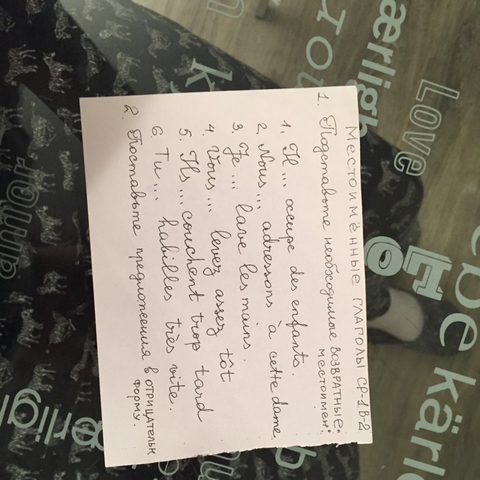 Местоимённые глаголы СР-1 В-2
1. Подставьте необходимые возвратные
местоимен.:
1. Il ... occupe des enfants
2. Nous ... adressons à cette dame,
3. Je ... lave les mains.
4. Vous ... levez assez tôt
5. Ils ... couchent trop tard
6. Tu ... habilles très vite.
2. Поставьте предложения в отрицательн
форму.
ærligh
Love
kærl